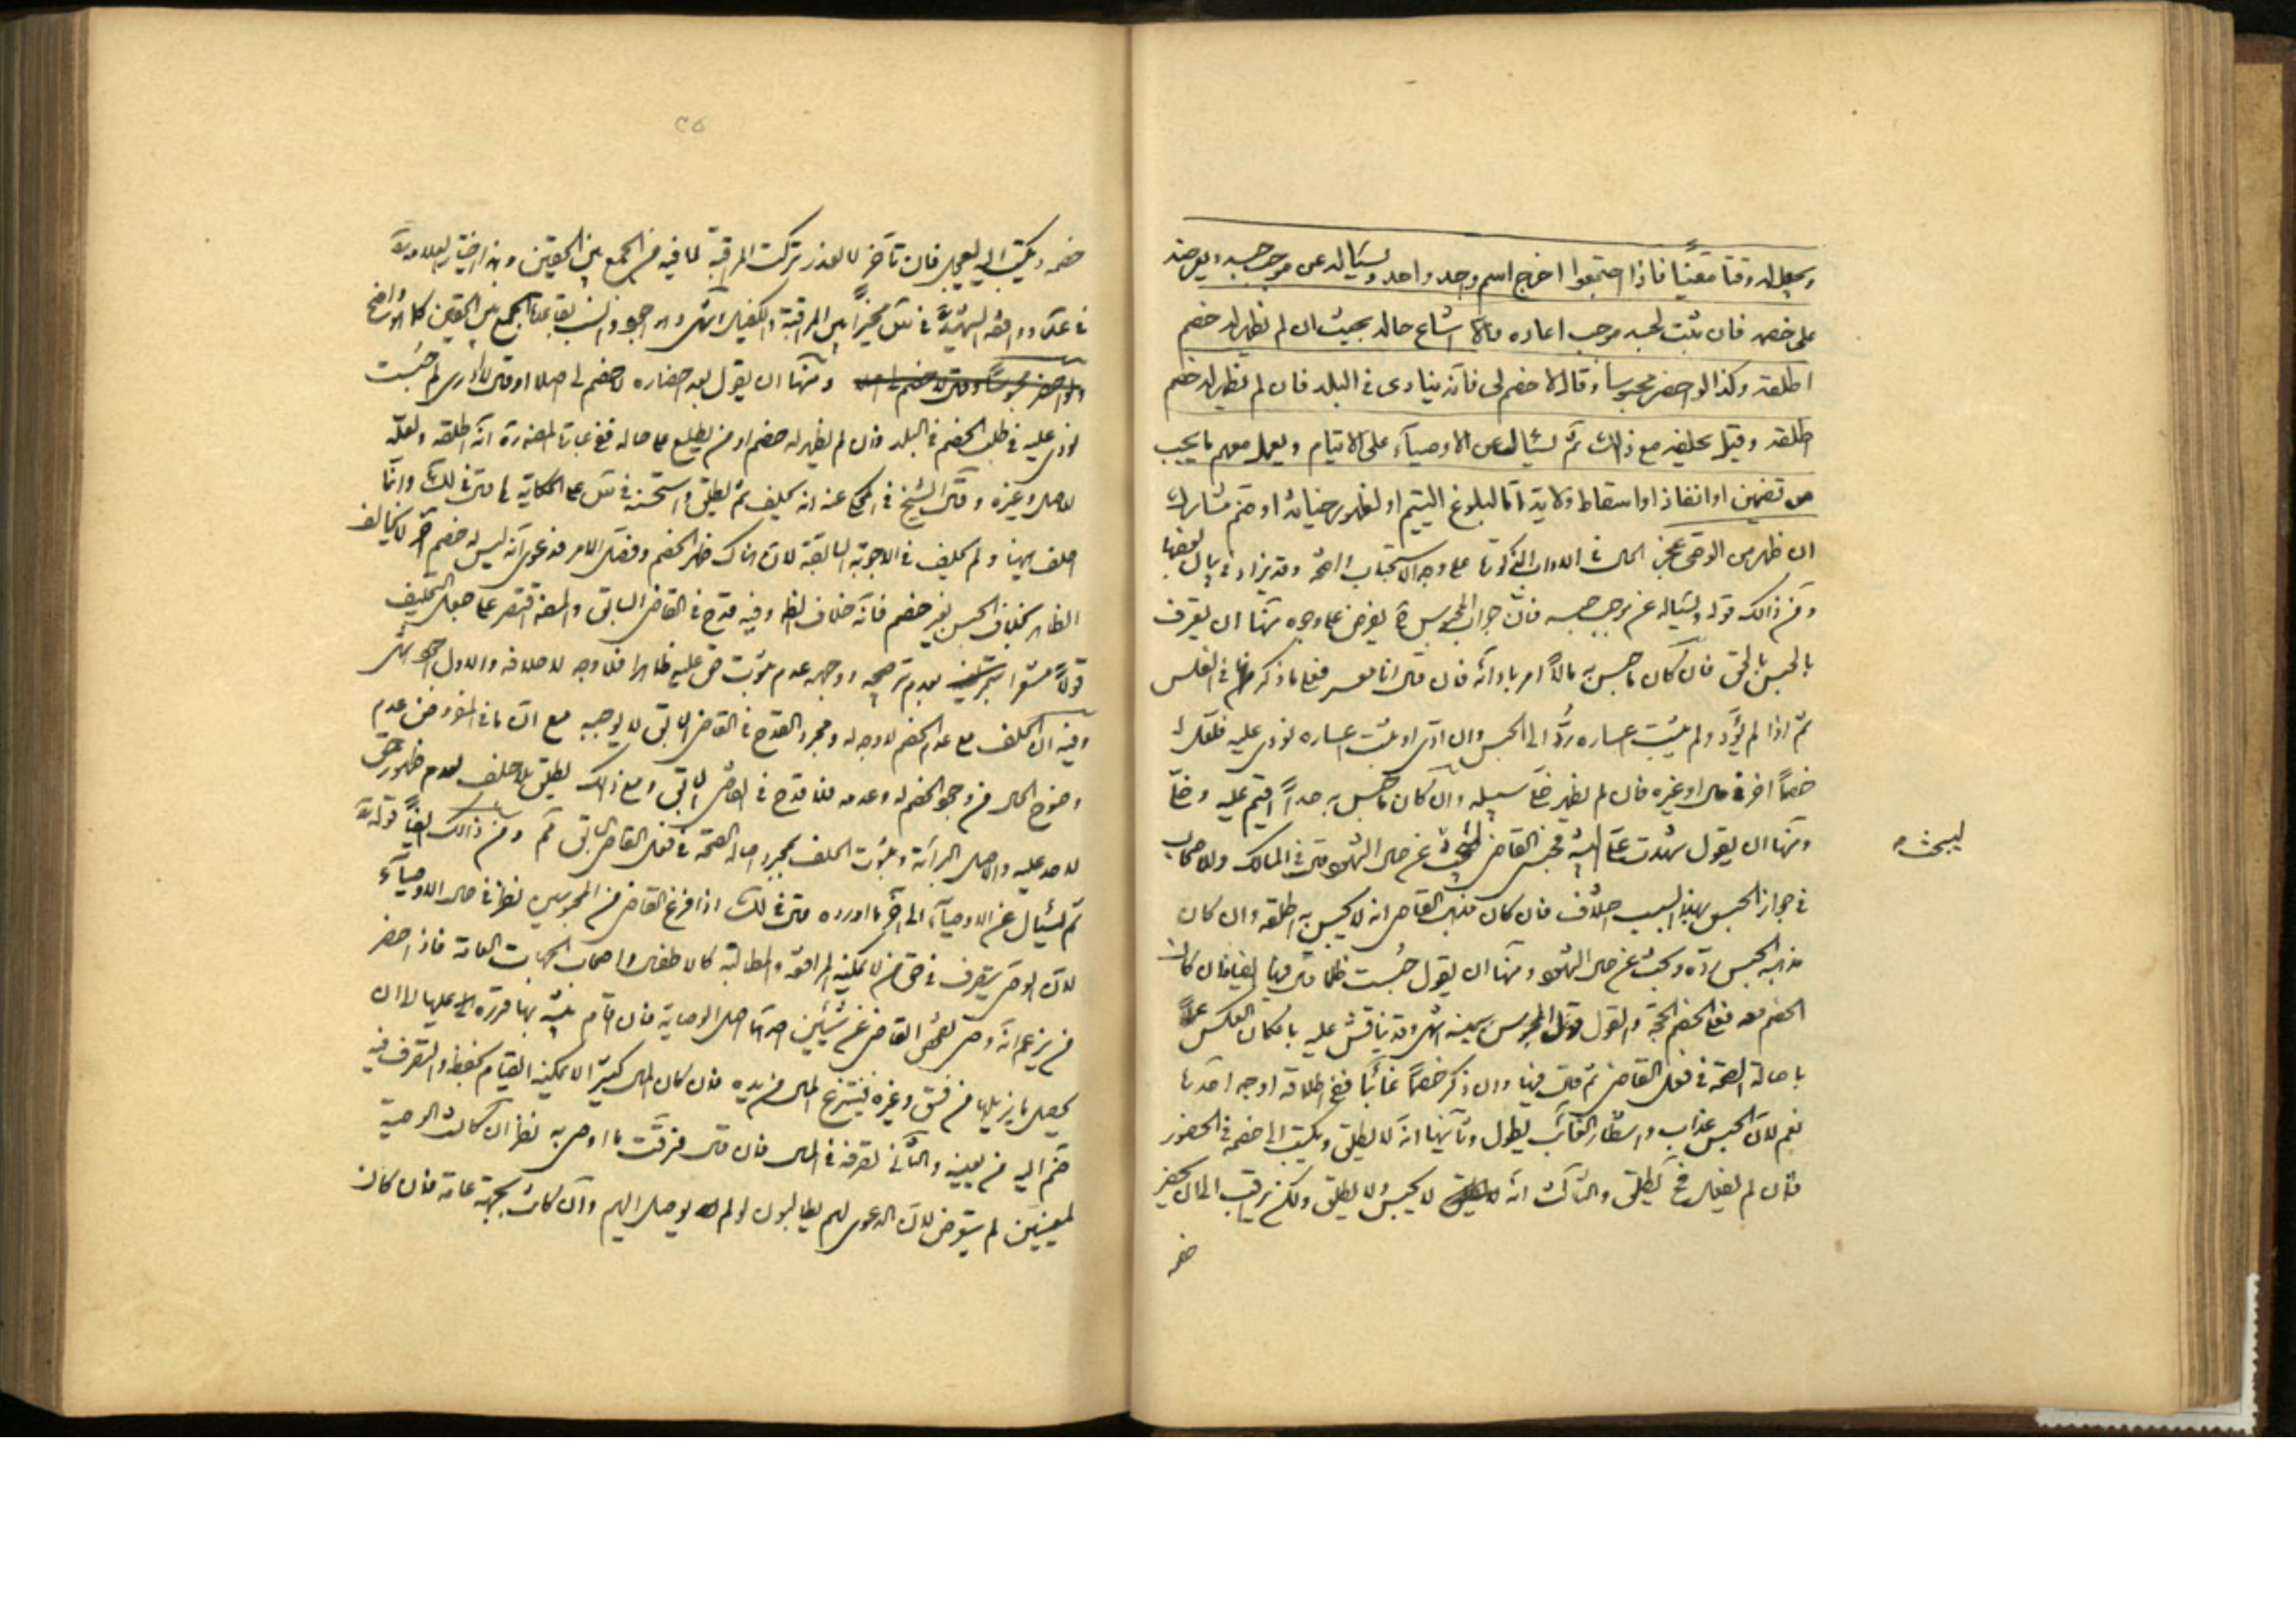 ويجعل له وقتا معينا فاذا اجتمعوا اخرج اسم واحد واحد ويسئاله عن موجب حبسه ويعرضه
على خصمه فان ثبت لحبسه موجب اعاده والا اشاع حاله بحيث ان لم يظهر له خصم
اطلقه وكذا لو احضر محبوسا وقال لا خصم لى فانه ينادى فى البلد فان لم يظهر له خصم
اطلقه وقيل يحلفه مع ذلك ثم يسئال عن الاوصياء على الايتام ويعمل معهم ما يجب
من تضمين او انفاذ او اسقاط ولاية اما لبلوغ اليتيم او لظهور خيانة او ضم مشارك
ان ظهر من الوصى عجز الحال فى الاداب المذكورة على وجه الاستحباب واضحة وقد يزاد فى بيان بعضها
ومن ذلك قوله ويسئاله عن موجب حبسه فان جواب المحبوس يفرض على وجوه منها ان يعترف
بالحبس بالحق فان كان ما حبس به مالا امر بادائه فان قال انا معسر فعلى ما ذكر فى الفلس
ثم اذا لم يؤد ولم يثبت اعساره رد الى الحبس وان ادى او ثبت اعساره نودى عليه فلعل له
خصما اخر فى مال او غيره فان لم يظهر خلى سبيله وان كان ما حبس به حدا اقيم عليه وخلى
ومنها ان يقول شهدت على البينة فحبسنى القاضى ليبحث عن حال الشهود قال فى المسالك وللاصحاب
ليبحث
فى جواز الحبس بهذا السبب خلاف فان كان مذهب القاضى انه لا يحبس به اطلقه وان كان
مذهبه الحبس رده وبحث عن حال الشهود ومنها ان يقول حبست ظلما قال فيها ايضا فان كان
الخصم معه فعلى الخصم الحجة والقول قول المحبوس بيمينه انتهى وقد يناقش عليه بامكان العكس عملا
باصالة الصحة فى فعل القاضى ثم قال فيها وان ذكر خصما غائبا ففى اطلاقه اوجه احدها
نعم لان الحبس عذاب وانتظار الغائب يطول وثانيها انه لا يطلق ويكتب الى خصمه فى الحضور
فان لم يفعل ح يطلق والثالث انه لا يحبس ولا يطلق ولكن يراقب الى ان يحضر
خصمه
خصمه ويكتب اليه ليعجل فان تاخر لا لعذر تركت المراقبة لما فيه من الجمع بين الحقين وهذا اختيار العلامة
فى عد ووافقه الشهيد فى س مخيرا بين المراقبة والكفيل انتهى وهو اجود وانسب بقاعدة الجمع بين الحقين كما هو واضح
ومنها ان يقول بعد احضاره لا خصم لى اصلا او قال لا ادرى لم حبست
نودى عليه فى طلب الخصم فى البلد فان لم يظهر له خصم او من يطلع على حاله ففى عبارة المصنف رة انه اطلقه ولعله
للاصل وغيره وقال الشيخ فى المحكى عنه انه يحلف ثم يطلق واستحسنه فى س على الحكاية كما قال فى لك وانما
احلف هنا ولم يحلف فى الاجوبة السابقة لان هناك ظهر الخصم وفصل الامر فدعوى انه ليس له خصم اخر لا يخالف
الظاهر بخلاف الحبس بغير خصم فانه خلاف الظ وفيه قدح فى القاضى السابق والمصنف اقتصر على جعل التحليف
قولا مشعرا بعدم ترجيحه ووجهه عدم ثبوت حق عليه ظاهرا فلا وجه لاحلافه والاول اجود انتهى
وفيه ان الحلف مع عدم الخصم لا وجه له ومجرد القدح فى القاضى السابق لا يوجبه مع ان ما نحن فيه المفروض عدم
وضوح الحال من وجود الخصم له وعدمه فلا قدح فى القاضى السابق ومع ذلك يطلق بلا حلف لعدم ظهور حق
لاحد عليه والاصل البرائة وثبوت الحلف بمجرد اصالة الصحة فى فعل القاضى السابق كم ومن ذلك ايضا قوله
ثم يسئال عن الاوصياء الى اخر ما اورده قال فى لك اذا فرغ القاضى من المحبوسين نظر فى حال الاوصياء
لان الوصى يتصرف فى حق من لا يمكنه المرافعة والمطالبة كالاطفال واصحاب الجهات العامة فاذا حضر
من يزعم انه وصى تفحص القاضى عن شيئين احدهما اصل الوصاية فان اقام بينة بها قرره عليها الا ان
يحصل ما يزيلها من فسق وغيره فينتزع المال من يده فان كان المال كثيرا لا يمكنه القيام بحفظه والتصرف فيه
ضم اليه من يعينه والثانى تصرفه فى المال فان قال فرقت ما اوصى به نظر ان كانت الوصية
لمعينين لم يتعرض لان الدعوى لهم يطالبون لو لم يوصل اليهم وان كانت لجهة عامة فان كان